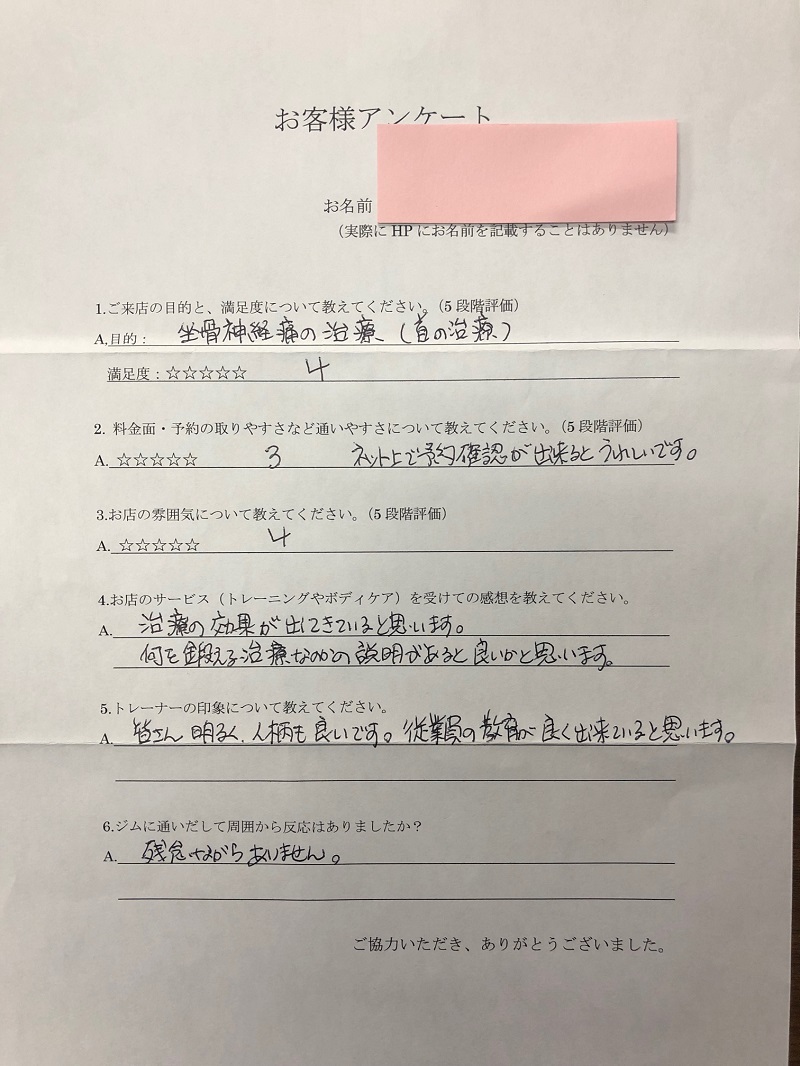 お客様アンケート
お名前
（実際に HP にお名前を記載することはありません）
1.ご来店の目的と、満足度について教えてください。（5 段階評価）
A,目的： 坐骨神経痛の治療（首の治療）
満足度：☆☆☆☆☆ 4
2. 料金面・予約の取りやすさなど通いやすさについて教えてください。（5 段階評価）
A. ☆☆☆☆☆ 3 ネット上で予約確認が出来るとうれしいです。
3.お店の雰囲気について教えてください。（5 段階評価）
A. ☆☆☆☆☆ 4
4.お店のサービス（トレーニングやボディケア）を受けての感想を教えてください。
A. 治療の効果が出てきていると思います。
何を鍛える治療なのかの説明があると良いかと思います。
5.トレーナーの印象について教えてください。
A. 皆さん明るく、人柄も良いです。従業員の教育が良く出来ていると思います。
6.ジムに通いだして周囲から反応はありましたか？
A. 残念ながらありません。
ご協力いただき、ありがとうございました。